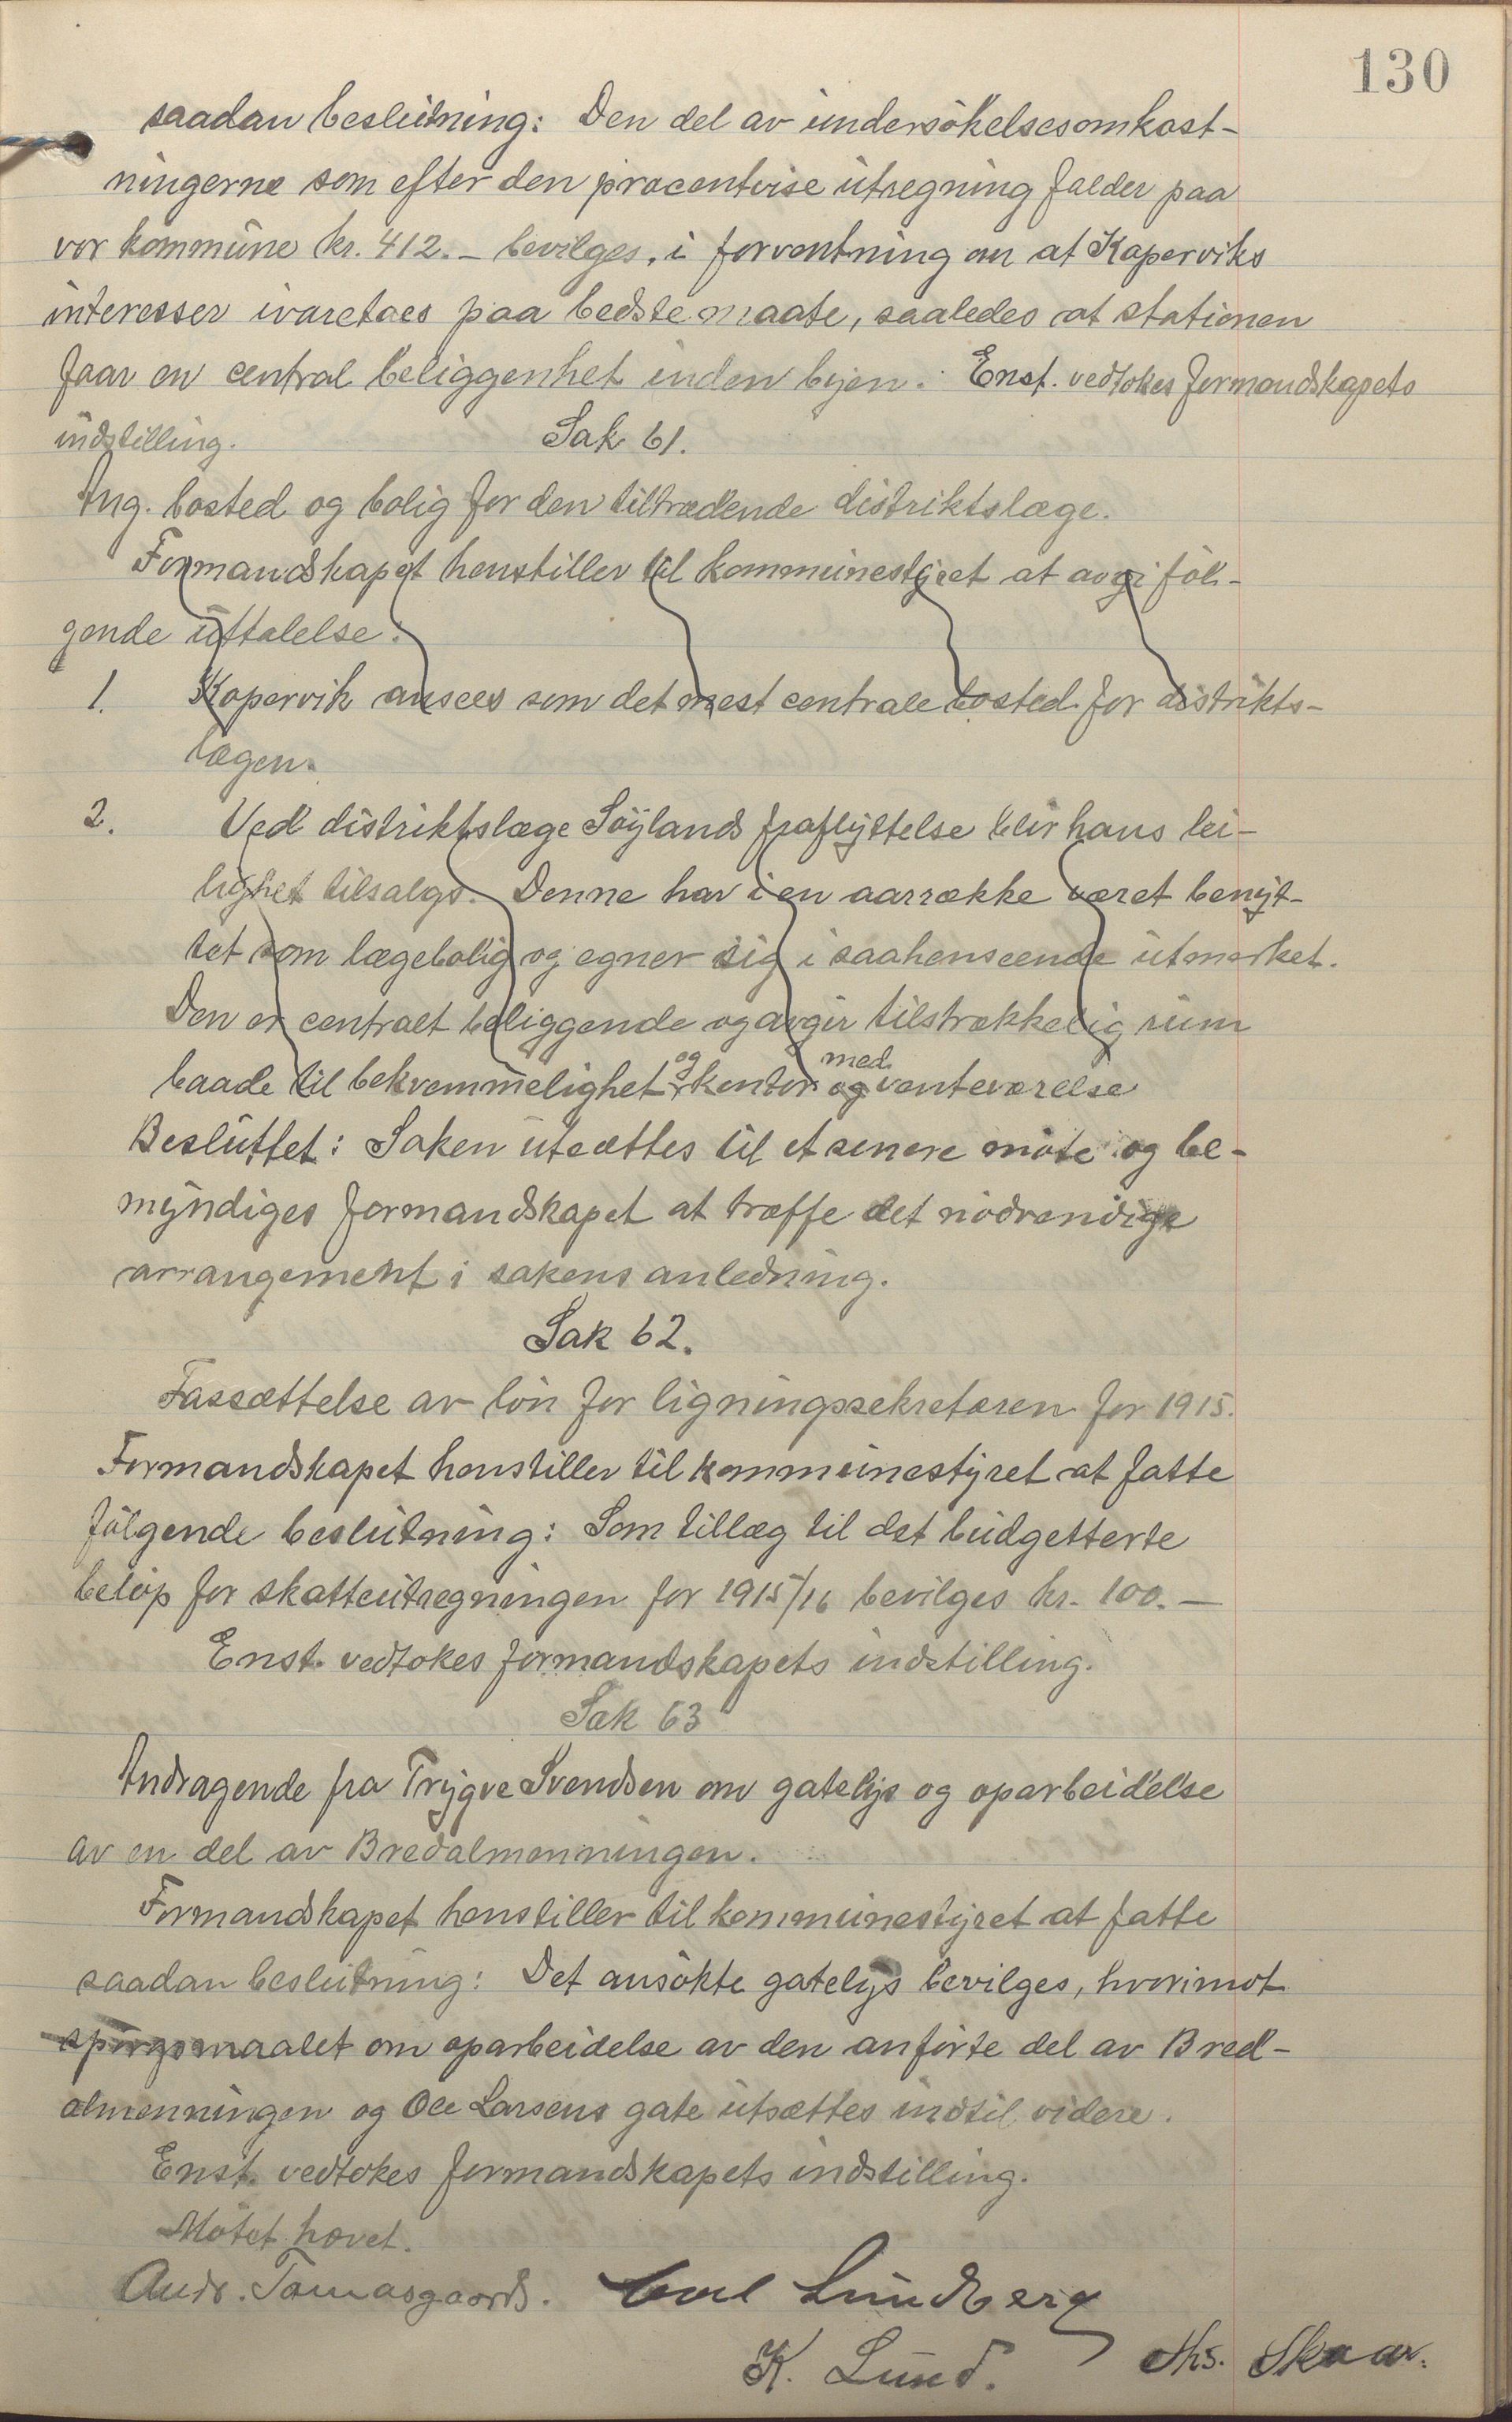 130
saadan beslutning: Den del av undersökelsesomkost-
ningerne som efter den procentvise utregning falder paa
vor kommune kr. 412.- bevilges, i forventning om at Koperviks
interesser ivaretaes paa bedste maate, saaledes at stationen
faar en central beliggenhet inden byen. Enst. vedtokes formandskapets
indstilling. Sak 61.
Ang. bosted og bolig for den tiltrædende distriktslæge.
Formandskapet henstiller til kommunestyret at avgi föl-
gende uttalelse:
1. Kopervik ansees som det mest centrale bosted for distrikts-
lægen.
2. Ved distriktslæge Söylands fraflyttelse blir hans lei-
lighet tilsalgs. Denne har i en aarrække været benyt-
tet som lægebolig og egner sig i saahenseende utmerket.
Den er centralt beliggende og avgir tilstrækkelig rum
baade til bekvemmelighet og kontor med og venteværelse
Besluttet: Saken utsættes til et senere möte og be-
myndiges formandskapet at træffe det nödvendige
arrangement i sakens anledning.
Sak 62.
Fassættelse av lön for ligningssekretæren for 1915.
Formandskapet henstiller til kommunestyret at fatte
fölgende beslutning: Som tillæg til det budgetterte
belöp for skatteutregningen for 1915/16 bevilges kr. 100.-
Enst. vedtokes formandskapets indstilling.
Sak 63
Andragende fra Trygve Svendsen om gatelys og oparbeidelse
av en del av Bredalmenningen.
Formandskapet henstiller til kommunestyret at fatte
saadan beslutning: Det ansökte gatelys bevilges, hvorimot
spörgsmaalet om oparbeidelse av den anförte del av Bred-
almenningen og Ole Larsens gate utsættes indtil videre.
Enst. vedtokes formandskapets indstilling.
Mötet hævet.
Andr. Tomasgaard. Carl Lundberg
K. Lund. Ths. Skaar.